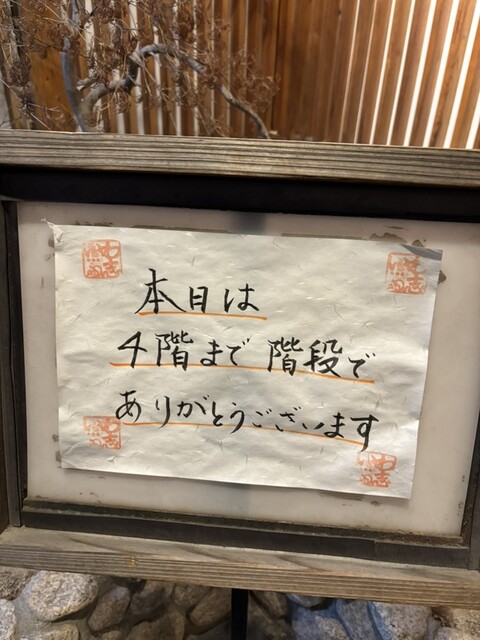 本日は
4階まで階段で
ありがとうございます